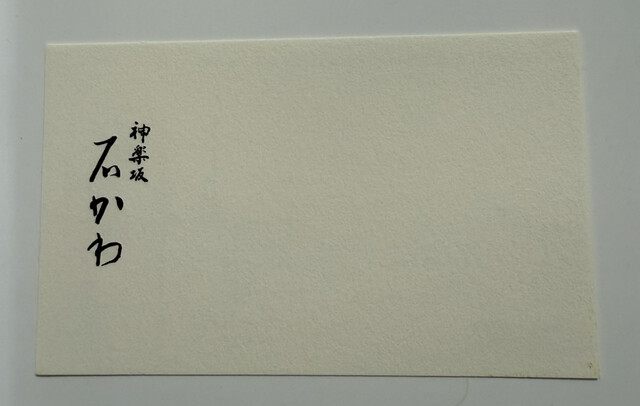 神楽坂
石かわ